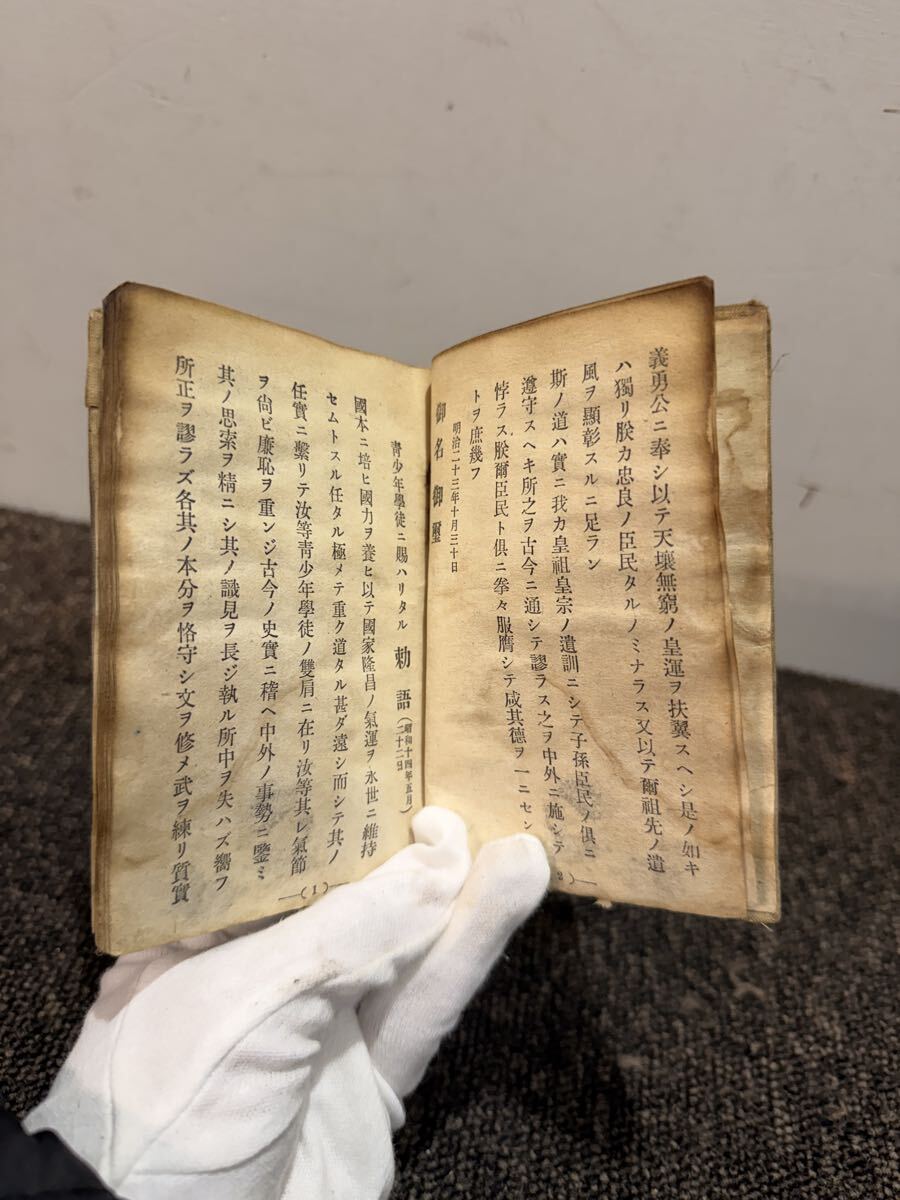 義勇公ニ奉シ以テ天壤無窮ノ皇運ヲ扶翼スヘシ是ノ如キ
ハ獨リ朕カ忠良ノ臣民タルノミナラス又以テ爾祖先ノ遺
風ヲ顯彰スルニ足ラン
斯ノ道ハ實ニ我カ皇祖皇宗ノ遺訓ニシテ子孫臣民ノ俱ニ
遵守スヘキ所之ヲ古今ニ通シテ謬ラス之ヲ中外ニ施シテ
悖ラス朕爾臣民ト俱ニ拳々服膺シテ咸其德ヲ一ニセン
トヲ庶幾フ
明治二十三年十月三十日
御名御璽
2)—
靑少年學徒ニ賜ハリタル勅語(昭和十四年五月二十二日)
國本ニ培ヒ國力ヲ養ヒ以テ國家隆昌ノ氣運ヲ永世ニ維持
セムトスル任タル極メテ重ク道タル甚ダ遠シ而シテ其ノ
任實ニ繫リテ汝等靑少年學徒ノ雙肩ニ在リ汝等其レ氣節
ヲ尙ビ廉恥ヲ重ンジ古今ノ史實ニ稽ヘ中外ノ事勢ニ鑒ミ
其ノ思索ヲ精ニシ其ノ識見ヲ長ジ執ル所中ヲ失ハズ嚮フ
所正ヲ謬ラズ各其ノ本分ヲ恪守シ文ヲ修メ武ヲ練リ質實
—(1)—